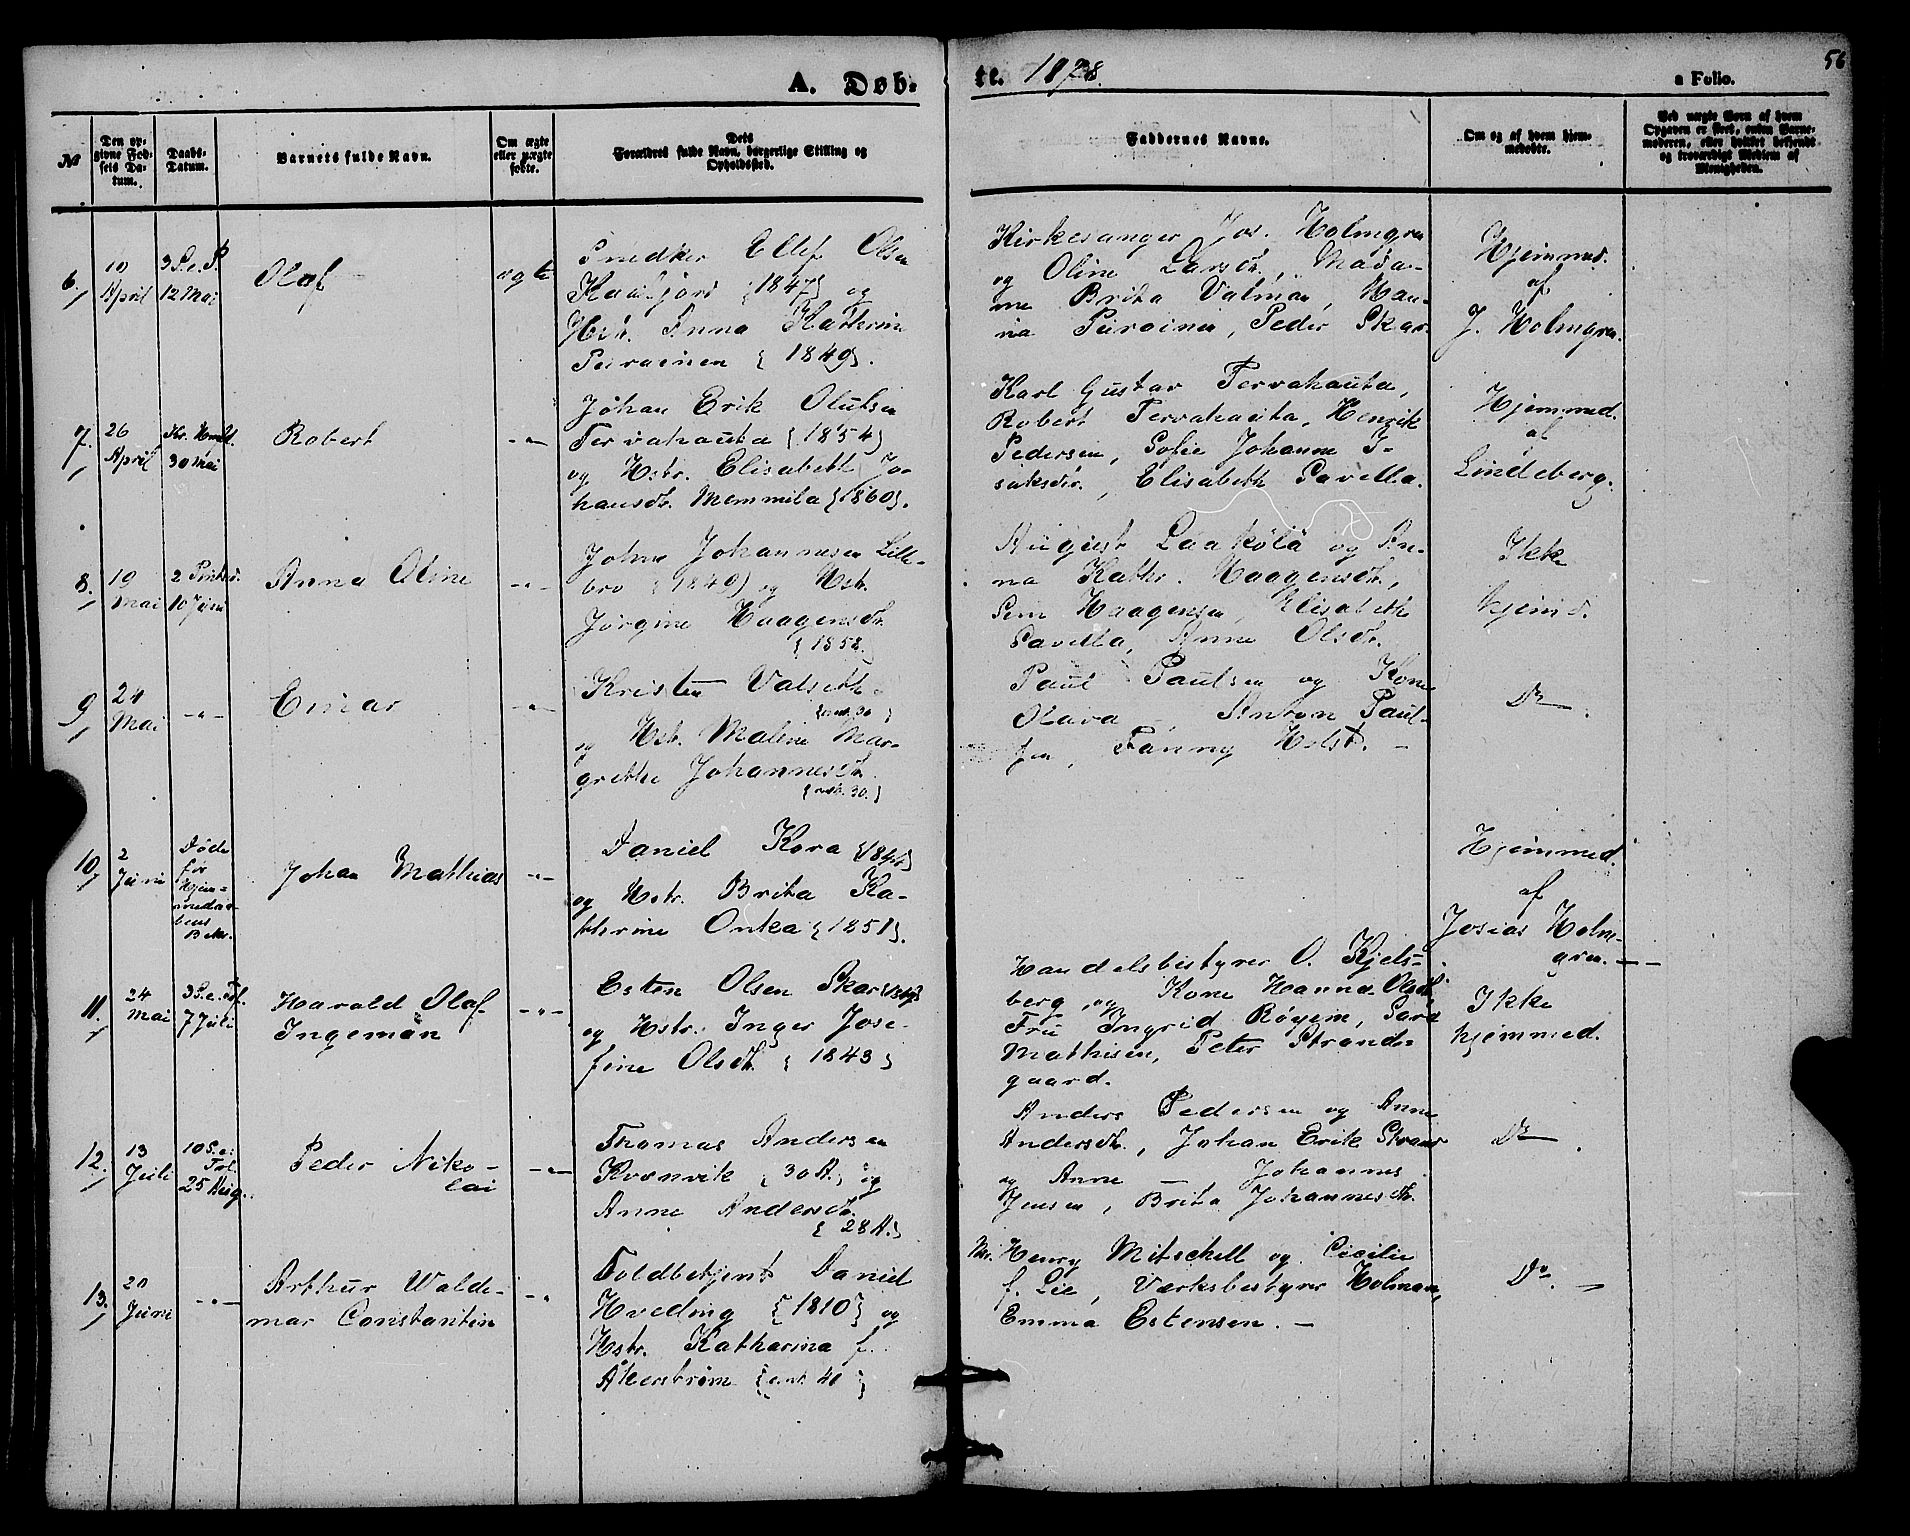 A. Døb-
te. 1878.
a Folio.
56
№
Den op-
givne Fød-
sels Da-
tum.
Daabs-
Datum.
Barnets fulde Navn.
Om ægte
eller uægte
fødte.
Dets
Forældres fulde Navn, borgerlige Stilling og
Opholdssted.
Faddernes Navne.
Om og af hvem hjem-
medøbt.
Ved uægte Børn af hvem
Opgaven er skeet, enten Barne-
moderen, eller hvilket bekjendt
og troværdigt Medlem af
Menigheden.
6.
10
April
3 S. e. P.
12 Mai
Olaf
ægte
Snedker Ellef Olsen
Kaafjord {1847} og
Hstr. Anna Katherine
Peirainen {1849}.
Kirkesanger Jos. Holmgren
og Oline Larsdtr., Mada-
me Brita Valman, Han-
na Peirainen, Peder Skar
Hjemmed.
af
J. Holmgren.
7.
26
April
Kr. Hmlf.
30 Mai
Robert
-"-
Johan Erik Olutsen
Tervahauta {1854}
og Hstr. Elisabeth Jo-
hansdtr. Memmila {1860}.
Karl Gustav Tervahauta,
Robert Tervahauta, Henrik
Pedersen, Sofie Johanne I-
saksdtr., Elisabeth Pavella.
Hjemmed.
af
Lindeberg.
8.
19
Mai
2 Pintsd.
10 Juni
Anna Oline
-"-
Johan Johannesen Lille-
bro {1849} og Hstr.
Jørgine Haagensdtr.
{1858.}
August Laakola og An-
na Kathr. Haagensdtr.,
Sem Haagensen, Elisabeth
Pavella, Anne Olsdtr.
Ikke
hjemd.
9
24
Mai
-"-
Einar
-"-
Kristen Valseth
{omtr. 30}
og Hstr. Maline Mar-
grethe Johannesdtr.
{omtr. 30.}
Paul Paulsen og Kone
Olava —, Anton Paul-
sen, Fanny Holst. —
Do.
10
2
Juni
Døde
før
Hjem-
medaa-
bens
Bekr.
Johan Mathias
-"-
Daniel Kova
og Hstr. Brita Ka-
therine Onka {1851}.
Hjemmed.
af
Josias Holm-
gren. — —
11.
24
Mai
3 S. e. Tref.
7 Juli
Harald Olaf
Ingeman
-"-
Esten Olsen Skar
og Hstr. Inger Jose-
fine Olsdtr. {1843}
Handelsbestyrer O. Kjels-
berg og Kone Hanna Olsdtr.,
Fru Ingrid Røyem, Sara
Mathisen, Peter Strands-
gaard.
Ikke
hjemmed.
12.
13
Juli
10 S. e.
Tref.
25 Aug.
Peder Niko-
lai
-"-
Thomas Andersen
Kvænvik {30 A.} og
Anne Andersdtr.
{28 A.}
Anders Pedersen og Anne
Andersdtr., Johan Erik Strand
og Anne — Johannes
Jensen, Brita Johannesdtr.
Do.
13.
20
Juni
-"-
Arthur Walde-
mar Constantin
-"
Toldbetjent Daniel
Hveding {1810} og
Hstr. Katharina f.
Åkerstrøm {omt. 40}
Mr. Henry Mitschell og Cecilie
f. Lie, Værksbestyrer Holman,
Emma Estensen. —
Do. —